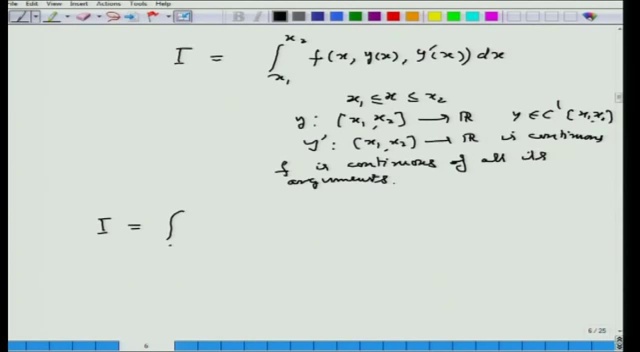 File Edit View Insert Actions Tools Help
I = ∫_{x₁}^{x₂} f(x, y(x), y'(x)) dx
x₁ ≤ x ≤ x₂
y : [x₁, x₂] → ℝ y ∈ C¹ [x₁, x₂]
y' : [x₁, x₂] → ℝ is continuous
f is continuous of all its
arguments.
I = ∫
6 / 25
6